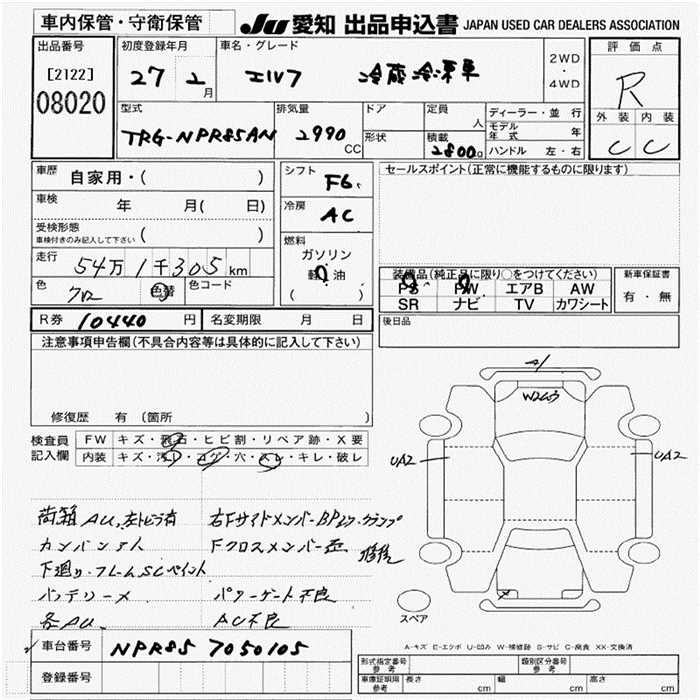 車内保管・守衛保管
JU 愛知 出品申込書 JAPAN USED CAR DEALERS ASSOCIATION
出品番号
[2122]
08020
初度登録年月
27 2
月
車名・グレード
エルフ 冷蔵冷凍車
2WD
・
4WD
評価点
R
外装 内装
C C
型式
TRG-NPR85AN
排気量
2990
CC
ドア
形状
定員
人
積載
2800g
ディーラー・並行
モデル年式 年
ハンドル 左・右
車歴
自家用・( )
車検
年 月( 日)
受検形態
車検付きのみ記入して下さい ( )
走行
54万1千305km
色
クロ
色替
色コード
シフト
F6
冷房
AC
燃料
ガソリン
軽油
( )
セールスポイント(正常に機能するものに限ります)
装備品(純正品に限り○をつけてください)
PS PW エアB AW
SR ナビ TV カワシート
新車保証書
有・無
R券 10440 円
名変期限 月 日
後日品
注意事項申告欄(不具合内容等は具体的に記入して下さい)
修復歴 有(箇所
検査員
記入欄
FW キズ・飛石・ヒビ割・リペア跡・X要
内装 キズ・汚レ・コゲ・穴・スレ・キレ・破レ
荷箱AU、左トビラ有
カンバンアト
下廻り・フレームSCペイント
バッテリーメ
各AU
右FサイドメンバーBPレク・クランプ
Fクロスメンバー歪 修復
パワーゲート不良
AC不良
A1
W2G3
UA2
UA2
X
スペア
A-キズ E-エクボ U-凹み W-補修跡 S-サビ C-腐食 XX-交換済
車台番号
NPR85 7050105
登録番号
形式指定番号
参考
類別区分番号
参考
車庫証明用
参考
長さ cm
幅 cm
高さ cm